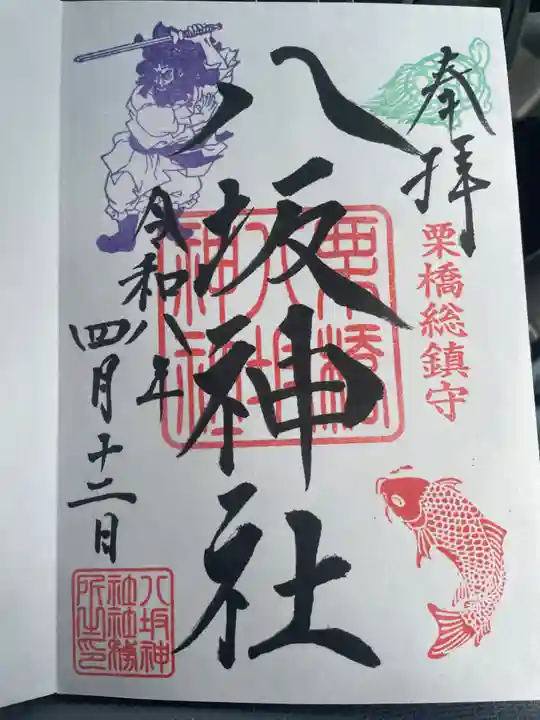 奉拝
栗橋総鎮守
八坂神社
栗橋
八坂
神社
令和八年
四月十二日
八坂神
社社務
所之印